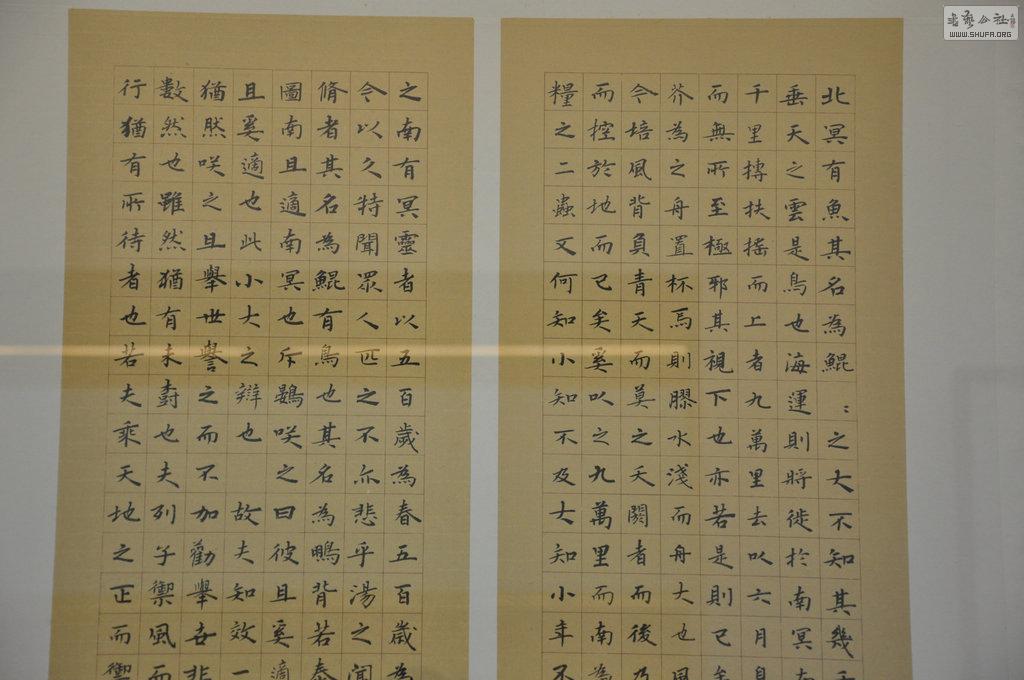 北冥有魚其名為鯤：之大不知其幾千
垂天之雲是鳥也海運則將徙於南冥南
千里摶扶搖而上者九萬里去以六月息
而無所至極邪其視下也亦若是則已矣
芥為之舟置杯焉則膠水淺而舟大也風
今培風背負青天而莫之夭閼者而後乃
而控於地而已矣奚以之九萬里而南為
糧之二蟲又何知小知不及大知小年不
之南有冥靈者以五百歲為春五百歲為
今以久特聞眾人匹之不亦悲乎湯之問
脩者其名為鯤有鳥也其名為鵬背若泰
圖南且適南冥也斥鷃咲之曰彼且奚適
且奚適也此小大之辯也 故夫知效一
猶然咲之且舉世譽之而不加勸舉世非
數然也雖然猶有未尌也夫列子禦風而
行猶有所待者也若夫乘天地之正而禦
書藝公社
WWW.SHUFA.ORG